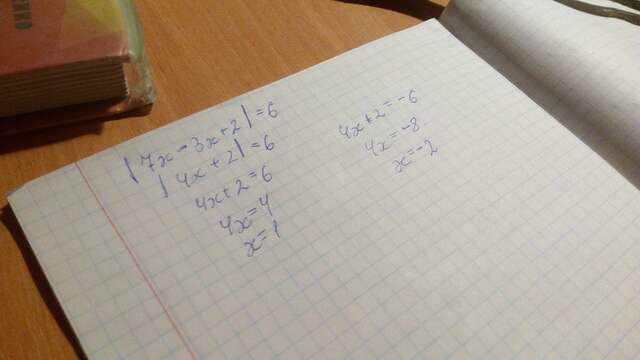 |7x-3x+2|=6
|4x+2|=6
4x+2=6
4x=4
x=1
4x+2=-6
4x=-8
x=-2